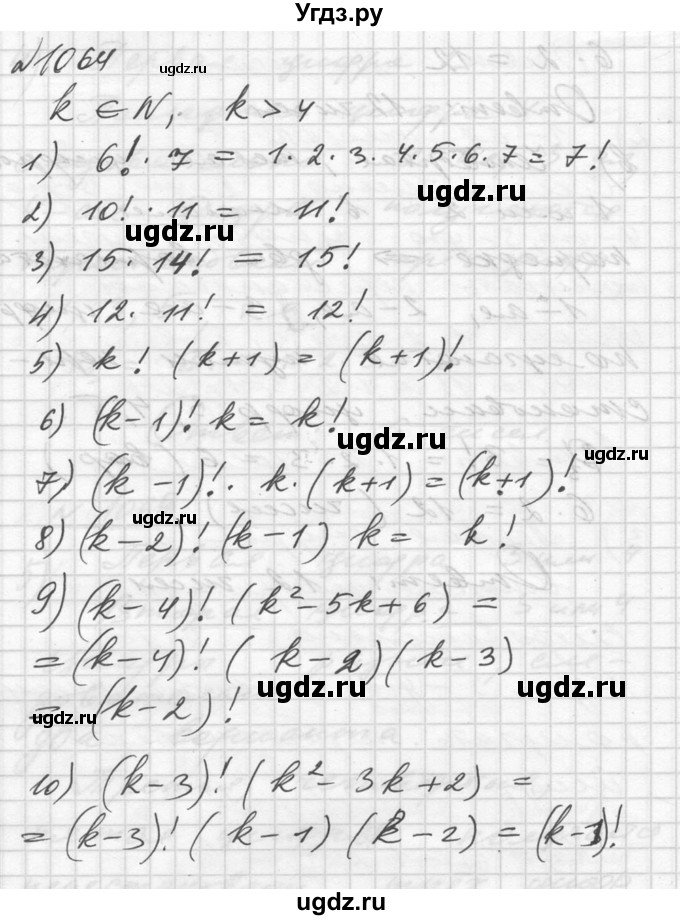 Угдз.ру
№1064
ugdz.ru
k ∈ N, k > 4
1) 6! · 7 = 1 · 2 · 3 · 4 · 5 · 6 · 7 = 7!
ugdz.ru
2) 10! · 11 = 11!
ugdz.ru
3) 15 · 14! = 15!
4) 12 · 11! = 12!
5) k! (k+1) = (k+1)!
6) (k-1)! k = k!
ugdz.ru
ugdz.ru
7) (k-1)! · k · (k+1) = (k+1)!
ugdz.ru
8) (k-2)! (k-1) k = k!
9) (k-4)! (k²-5k+6) =
= (k-4)! (k-2)(k-3)
ugdz.ru ugdz.ru
= (k-2)!
10) (k-3)! (k²-3k+2) =
= (k-3)! (k-1) (k-2) = (k-1)!
ugdz.ru
ugdz.ru
ugdz.ru